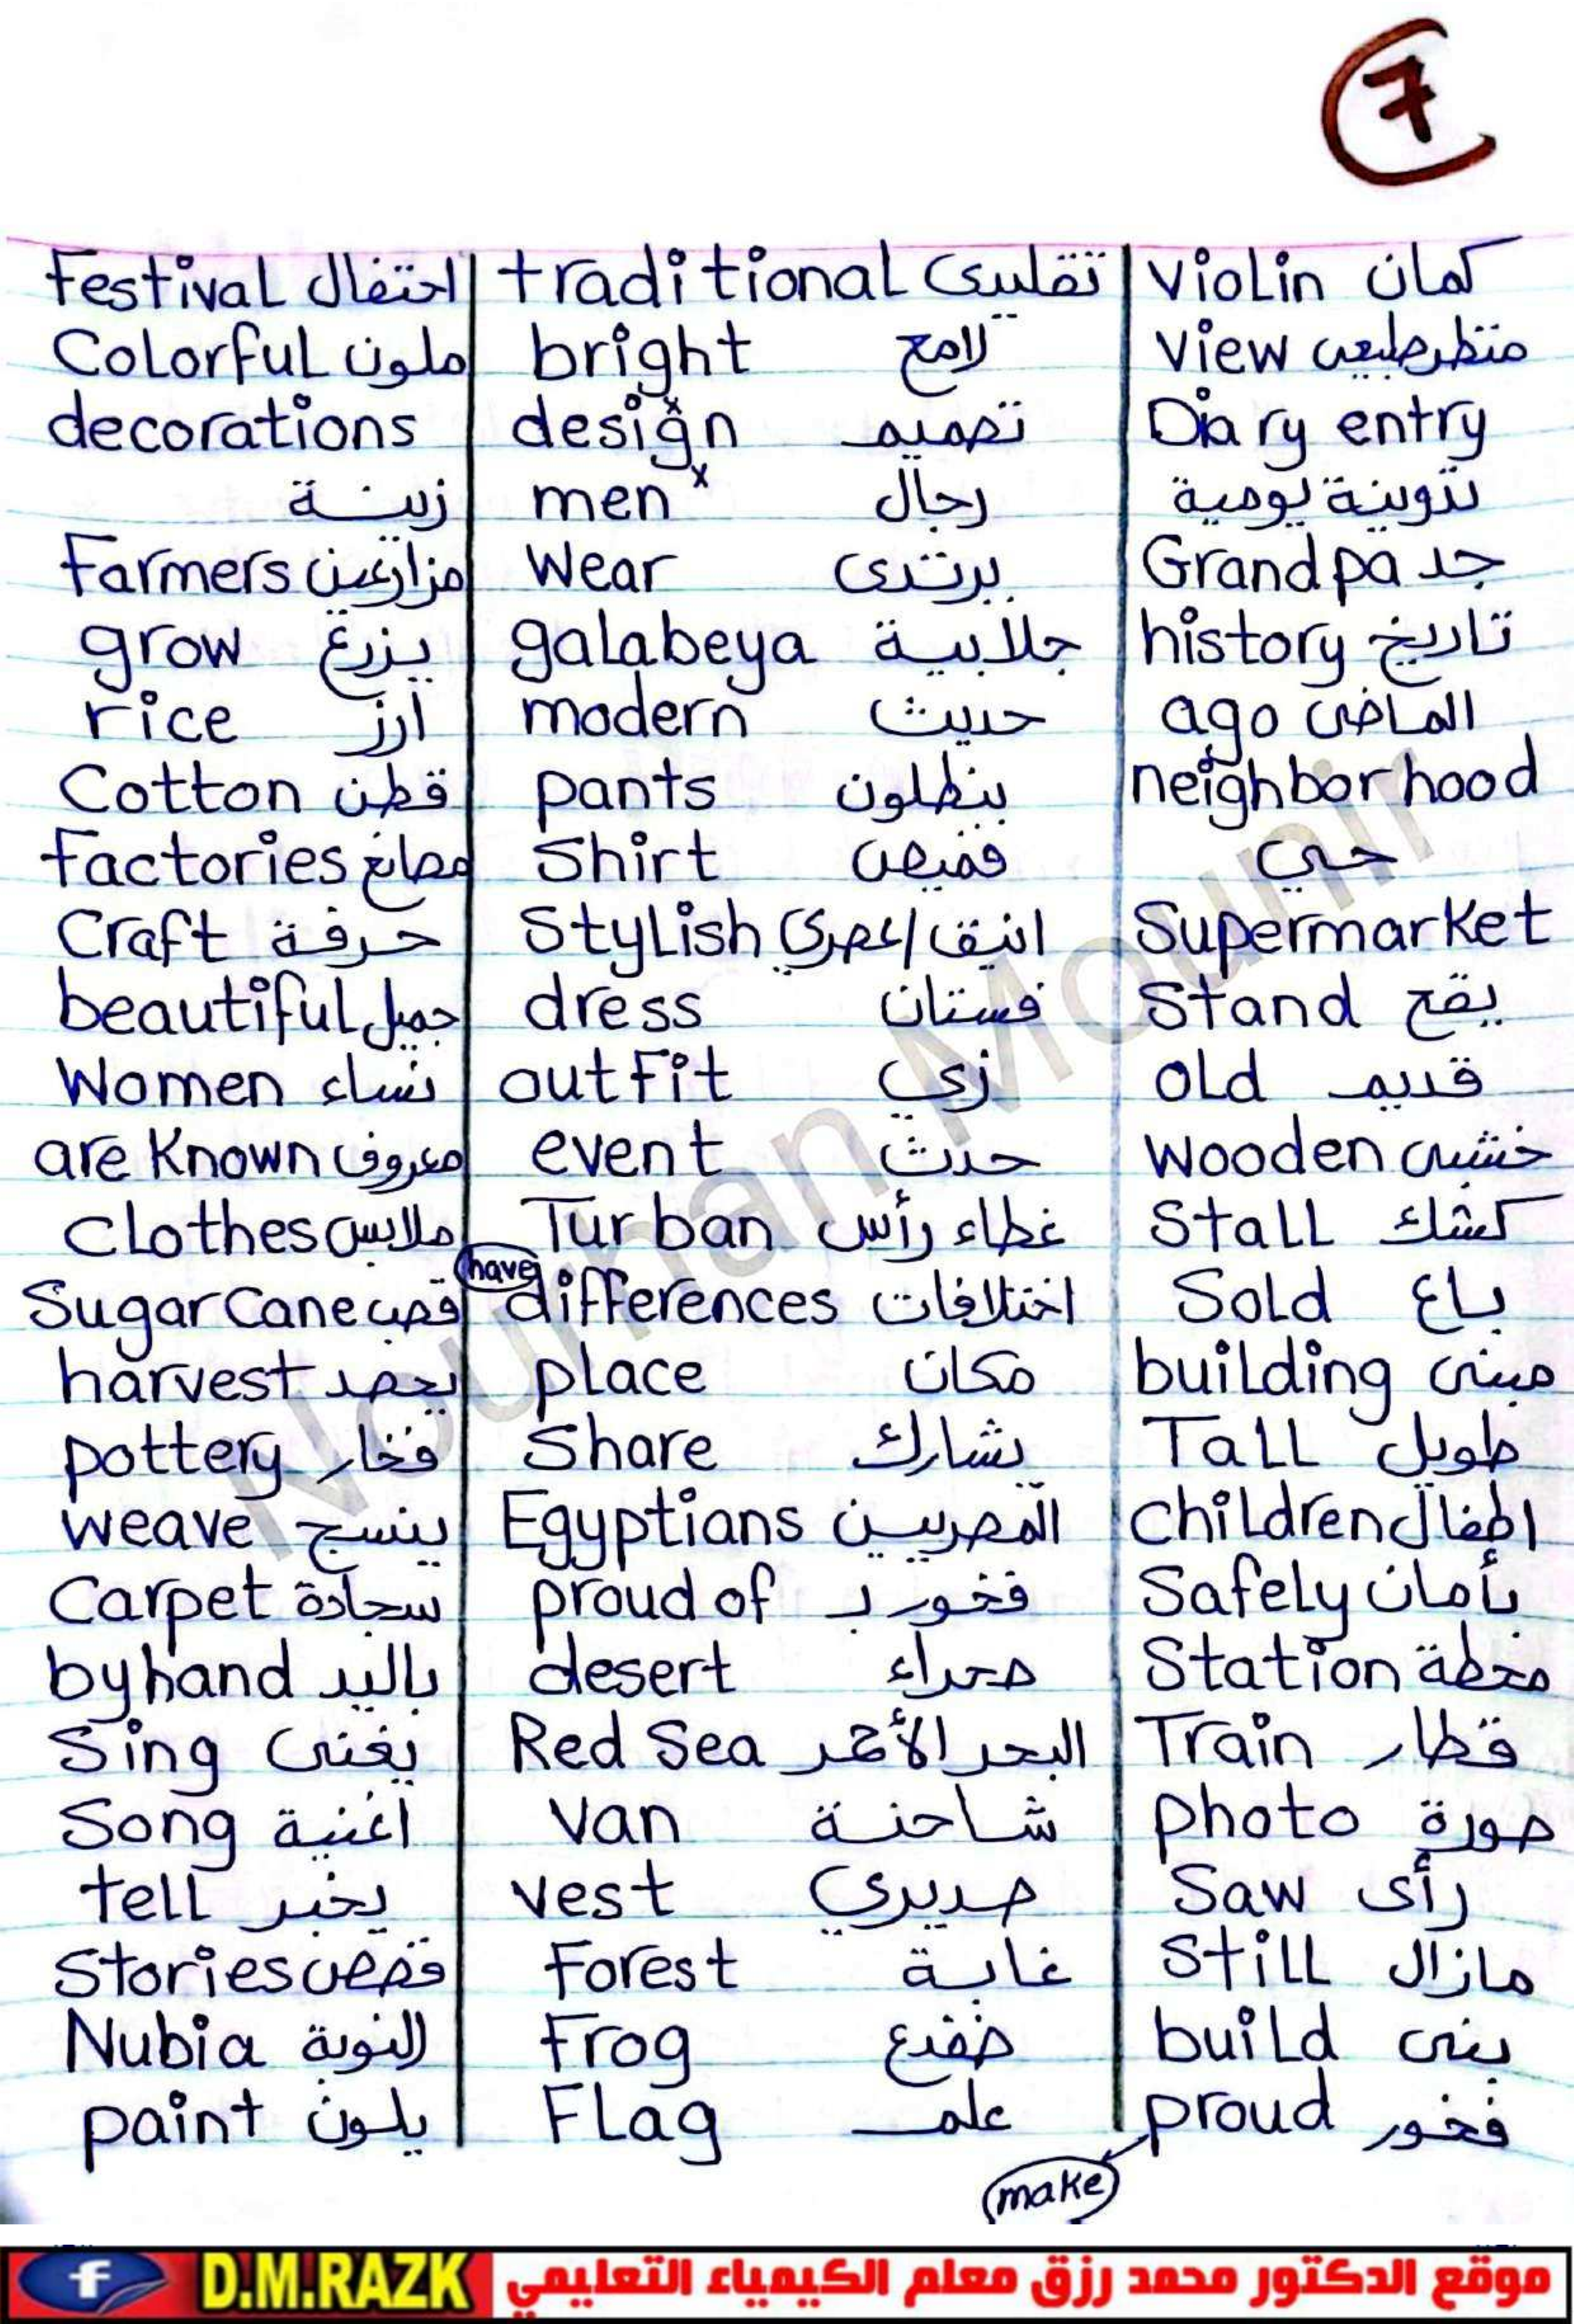 7
Festival احتفال
Colorful ملون
decorations
زينة
Farmers مزارعين
grow يزرع
rice أرز
Cotton قطن
Factories مصانع
Craft حرفة
beautiful جميل
Women نساء
are Known معروف
Clothes ملابس
Sugar Cane قصب
harvest يحصد
pottery فخار
weave ينسج
Carpet سجادة
by hand باليد
Sing يغنى
Song أغنية
tell يخبر
Stories قصص
Nubia النوبة
paint يلون
traditional تقليدى
bright لامح
design تصميم
men رجال
Wear يرتدى
galabeya جلابية
modern حديث
pants بنطلون
Shirt قميص
Stylish انيق/عصري
dress فستان
outfit زي
event حدث
Turban غطاء رأس
have
differences اختلافات
place مكان
Share يشارك
Egyptians المصريين
proud of فخور بـ
desert صحراء
Red Sea البحر الأحمر
Van شاحنة
vest صديري
Forest غابة
Frog ضفدع
Flag علم
Violin كمان
View منظر طبيعى
Diary entry
تدوينة يومية
Grandpa جد
history تاريخ
ago الماضى
neighborhood
حي
Supermarket
Stand يقع
old قديم
Wooden خشبى
Stall كشك
Sold باع
building مبنى
Tall طويل
Children اطفال
Safely بأمان
Station محطة
Train قطار
photo صورة
Saw رأى
Still مازال
build بنى
proud فخور
make
Nourhan Mounir
D.M.RAZK موقع الدكتور محمد رزق معلم الكيمياء التعليمي